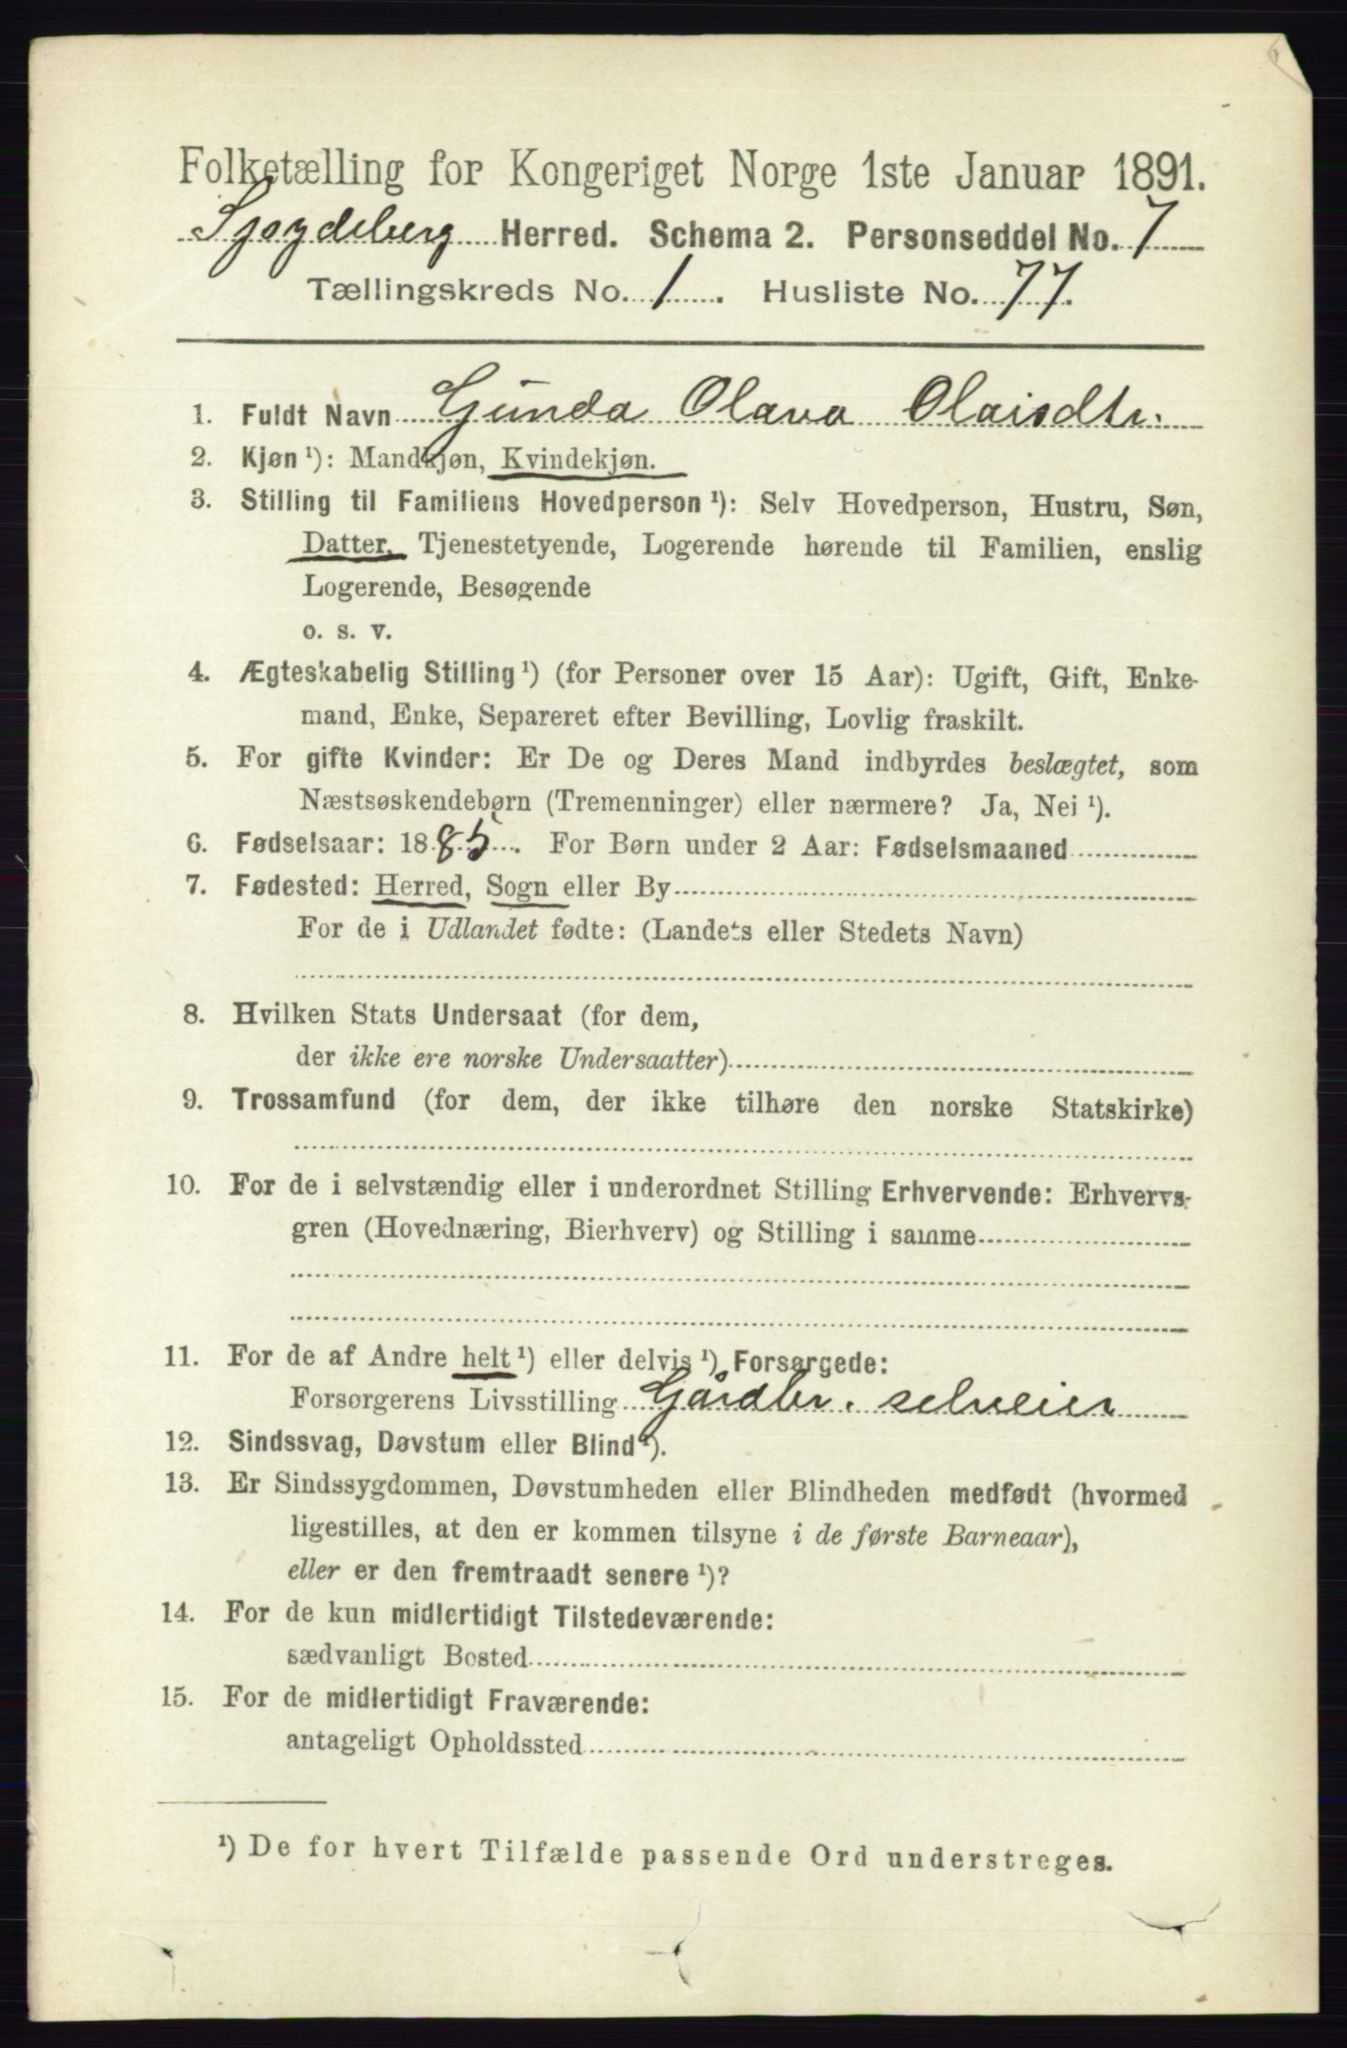 Folketælling for Kongeriget Norge 1ste Januar 1891.
Spydeberg Herred. Schema 2. Personseddel No. 7
Tællingskreds No. 1. Husliste No. 77.
1. Fuldt Navn Gunda Olava Olaisdtr.
2. Kjøn ¹): Mandkjøn, Kvindekjøn.
3. Stilling til Familiens Hovedperson ¹): Selv Hovedperson, Hustru, Søn,
Datter, Tjenestetyende, Logerende hørende til Familien, enslig
Logerende, Besøgende
o. s. v.
4. Ægteskabelig Stilling ¹) (for Personer over 15 Aar): Ugift, Gift, Enke-
mand, Enke, Separeret efter Bevilling, Lovlig fraskilt.
5. For gifte Kvinder: Er De og Deres Mand indbyrdes beslægtet, som
Næstsøskendebørn (Tremenninger) eller nærmere? Ja, Nei ¹).
6. Fødselsaar: 1885. For Børn under 2 Aar: Fødselsmaaned
7. Fødested: Herred, Sogn eller By
For de i Udlandet fødte: (Landets eller Stedets Navn)
8. Hvilken Stats Undersaat (for dem,
der ikke ere norske Undersaatter)
9. Trossamfund (for dem, der ikke tilhøre den norske Statskirke)
10. For de i selvstændig eller i underordnet Stilling Erhvervende: Erhvervs-
gren (Hovednæring, Bierhverv) og Stilling i samme
11. For de af Andre helt ¹) eller delvis ¹) Forsørgede:
Forsørgerens Livsstilling Gårdbr. selveier
12. Sindssvag, Døvstum eller Blind ¹).
13. Er Sindssygdommen, Døvstumheden eller Blindheden medfødt (hvormed
ligestilles, at den er kommen tilsyne i de første Barneaar),
eller er den fremtraadt senere ¹)?
14. For de kun midlertidigt Tilstedeværende:
sædvanligt Bosted
15. For de midlertidigt Fraværende:
antageligt Opholdssted
¹) De for hvert Tilfælde passende Ord understreges.